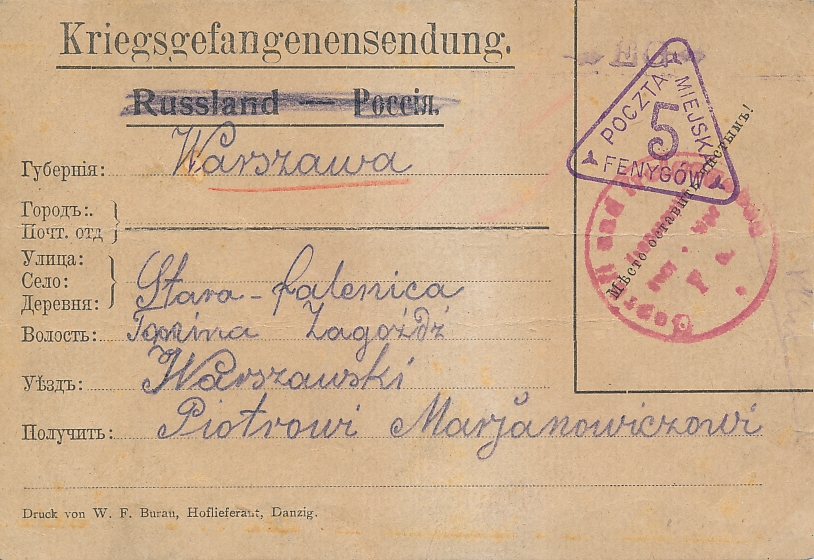 Kriegsgefangenensendung.
Russland — Россія.
POCZTA MIEJSKA
5
FENYGÓW
Мѣсто оставить чистымъ!
Губернія: Warszawa
Городъ:
Почт. отд
Улица:
Село: Stara-falenica
Деревня:
Волость: Gmina Zagóźdź
Уѣздъ: Warszawski
Получить: Piotrowi Marjanowiczowi
Druck von W. F. Burau, Hoflieferant, Danzig.